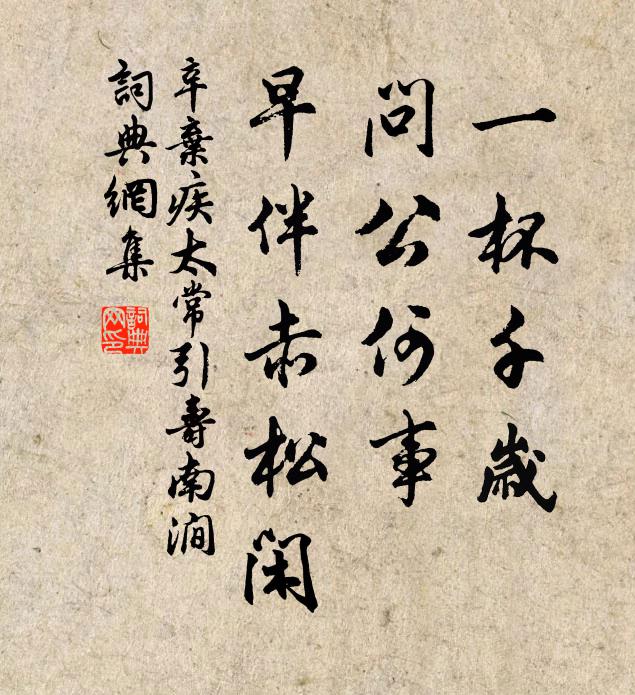 一杯千歲
問公何事
早伴赤松閑
辛棄疾太常引壽南澗
詞典網集
詞典網印